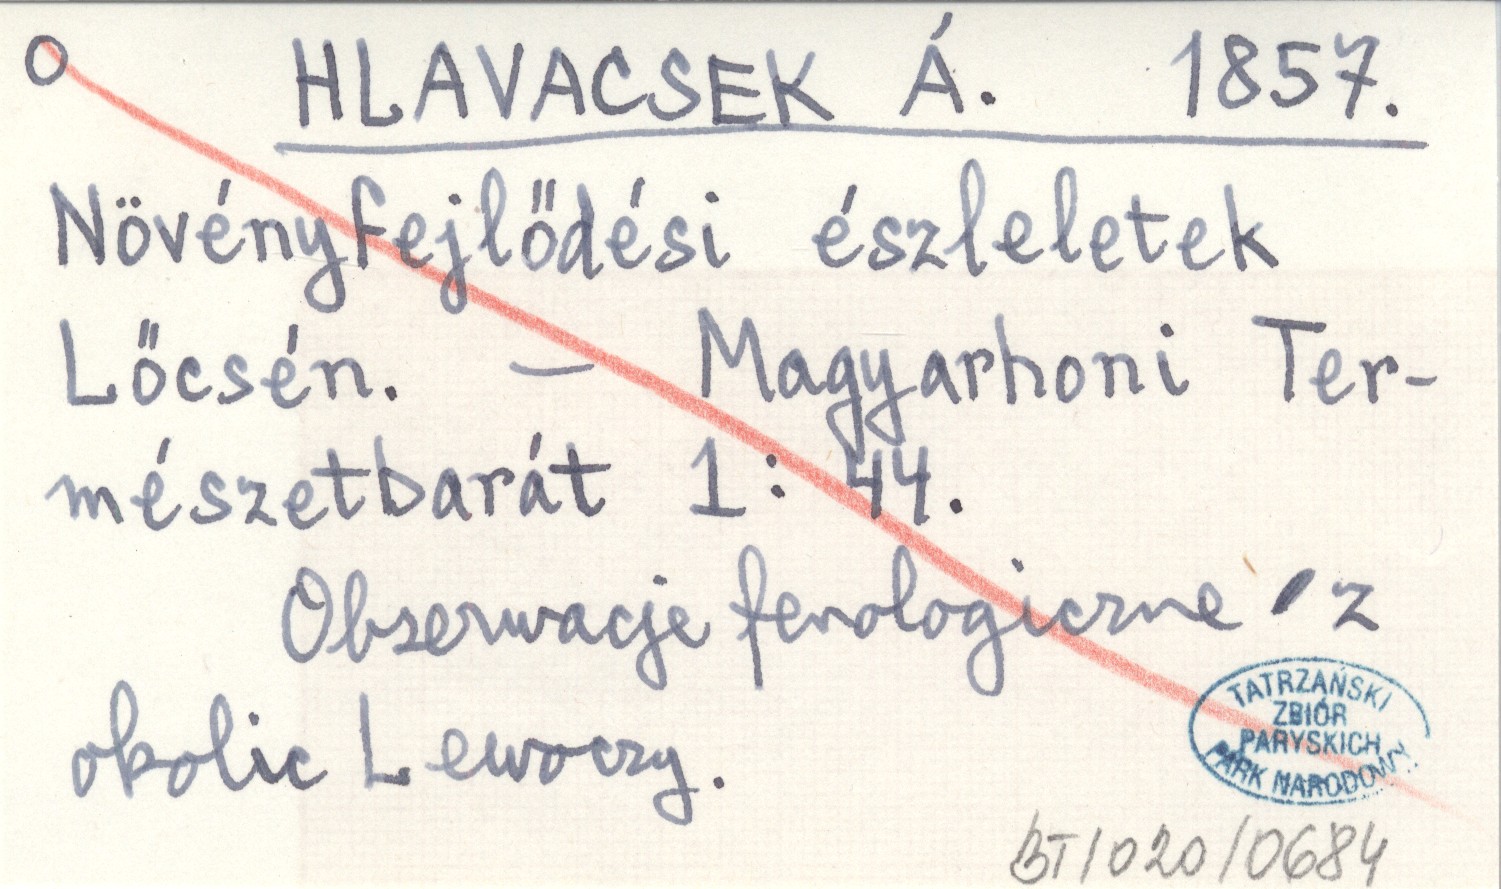 O HLAVACSEK Á. 1857.
Növényfejlődési észleletek
Lőcsén. — Magyarhoni Ter-
mészetbarát 1: 44.
Obserwacje fenologiczne z
okolic Lewoczy.
TATRZAŃSKI
ZBIÓR
PARYSKICH
PARK NARODOWY
BT/020/0684